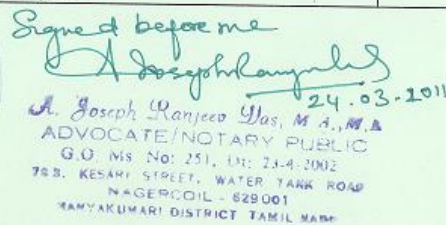 Signed before me
A Joseph Ranjeev Das
24.03.2011
A. Joseph Ranjeev Das, M A., M.A
ADVOCATE/NOTARY PUBLIC
G.O. Ms No: 251, Dt: 23-4-2002
78B, KESARI STREET, WATER TANK ROAD
NAGERCOIL - 629001
KANYAKUMARI DISTRICT TAMIL NADU